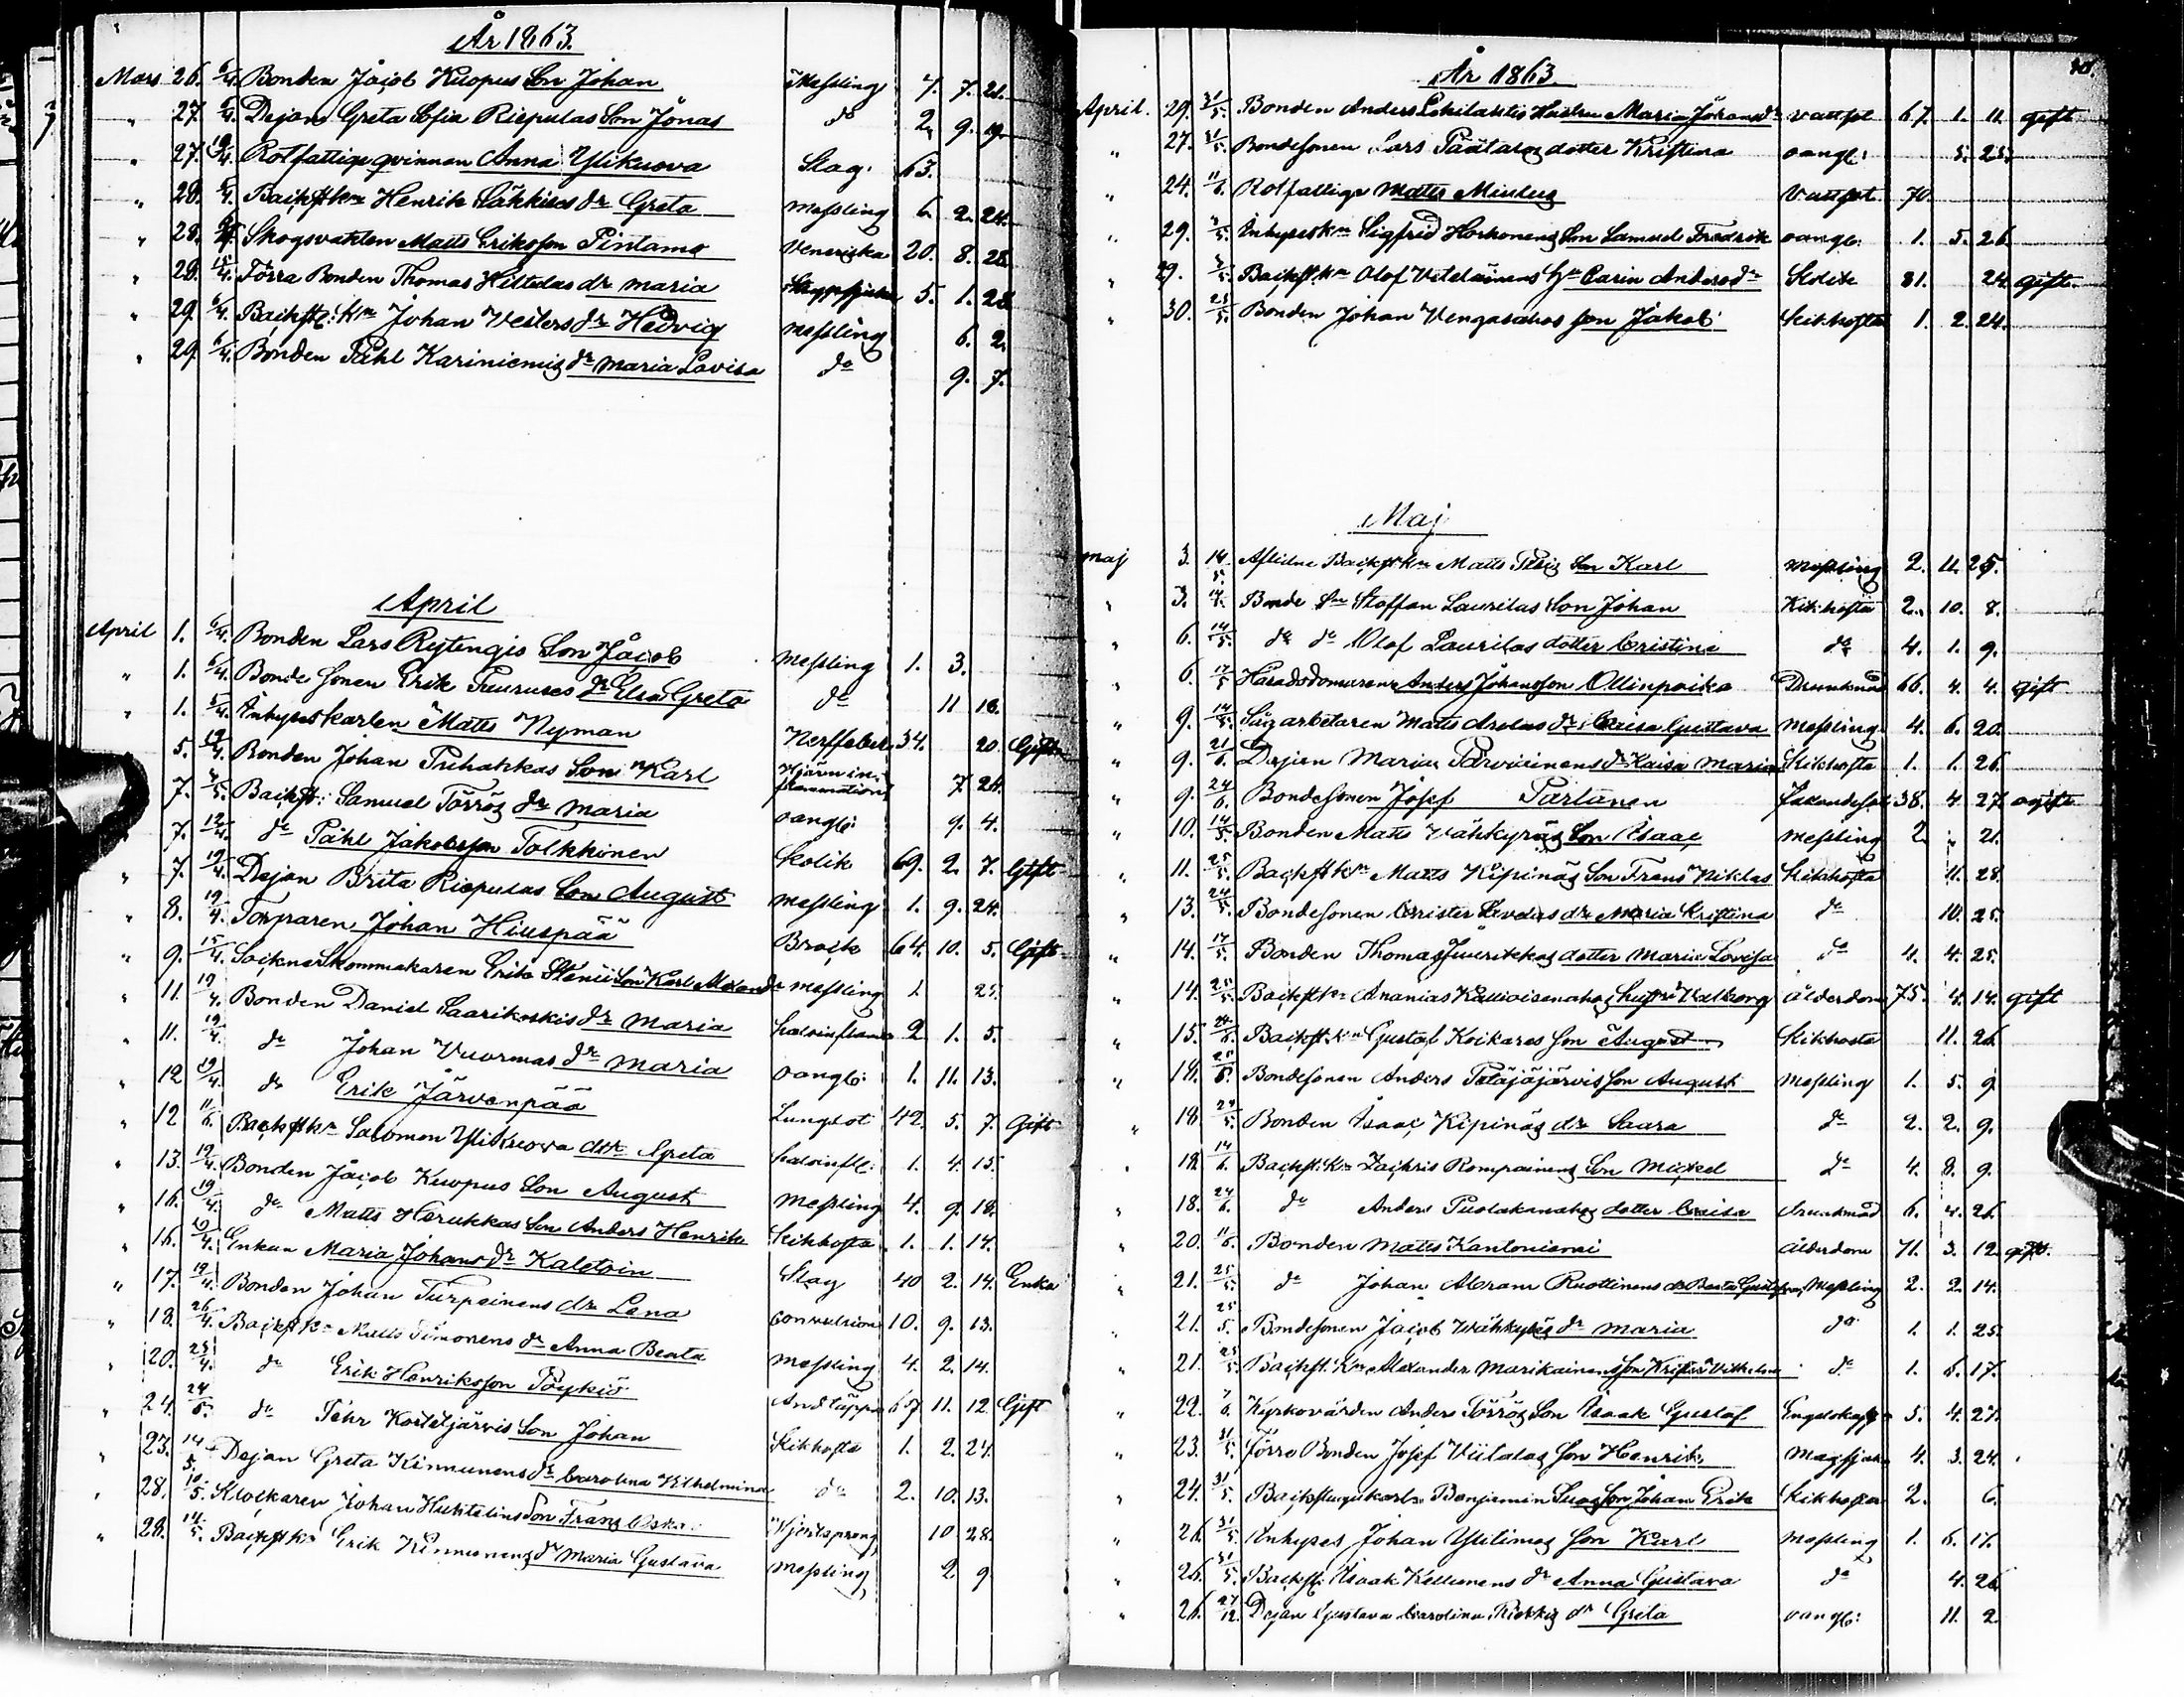 År 1863.
Mars 26. 6/4. Bonden Jacob Kuopus Son Johan Meßling 4. 7. 21.
" 27. 6/4. Dejan Greta Sofia Riepulas Son Jonas do 2. 9. 19.
" 27. 19/4. Rotfattige qvinnan Anna Ylikuova Slag. 63.
" 28. 6/4. Backstkn Henrik Säkkines dr Greta Meßling 6. 2. 24.
" 28. Skogsvakten Matts Eriksson Pintamo Veneriska 20. 8. 28.
" 28. 15/4. Förra Bonden Thomas Hiltulas dr Maria 5. 1. 28.
" 29. 6/4. Backstu: kn Johan Veslers dr Hedvig Meßling 6. 2.
" 29. 6/4. Bonden Påhl Kariniemis dr Maria Lovisa do 9. 7.
April
April 1. 6/4. Bonden Lars Rytengis Son Jacob Meßling 1. 3.
" 1. 6/4. Bonde Sonen Erik Tauruses dr Elsa Greta do 11 16.
" 1. 5/4. Inhyseskarlen Matts Nyman Nerffeber 34. 20. Gift
5. 12/4. Bonden Johan Puhakkas Son Karl Hjärnin-flammation 7. 24.
7. 3/5. Backst: Samuel Törrös dr Maria oangb: 9. 4.
7. 12/4. do Påhl Jakobsson Tolkkinen Kolik 69. 2. 7. Gift
" 7. 19/4. Dejan Brita Riepulas Son August Meßling 1. 9. 24.
" 8. 19/4. Torparen Johan Hiuspää Bråck 64. 10. 5. Gift
" 9. 15/4. Sockneskommakaren Erik Stenii Son Karl Alexand Meßling 1. 25.
" 11. 19/4. Bonden Daniel Saarikoskis dr Maria halsinflam 2 1. 5.
" 11. 19/4. do Johan Vuormas dr Maria oangb: 1. 11. 13.
" 12 19/4. do Erik Järvenpää Lungsot 42. 5. 7. Gift
" 12 11/6. Backstkn Salomon Ylikuova dttr Greta halsinfl: 1. 4. 15.
" 13. 19/4. Bonden Jacob Kuopus Son August Meßling 4. 9. 18.
" 16. 19/4. do Matts Harukkas Son Anders Henrik Kikhosta 1. 1. 14.
" 16. 19/4. Enkan Maria Johansdr Kaletoin Slag 40 2. 14. Enka
" 17. 19/4. Bonden Johan Turpeinens dr Lena convulsion 10. 9. 13.
" 18. 26/4. Backstkn Matts Simonens dr Anna Beata Meßling 4. 2. 14.
" 20. 25/4. do Erik Henriksson Pöykiö Andtäppa 67 11. 12. Gift
" 24. 24/5. do Pehr Kostetjärvis Son Johan Kikhosta 1. 2. 24.
" 23. 14/5. Dejan Greta Kinnunens dr Carolina Vilhelmina do 2. 10. 13.
" 28. 10/5. Klockaren Johan Huhtelins Son Frans Oskar Hjertsprång 10 28.
" 28. 14/5. Backstkn Erik Kinnunens dr Maria Gustava Meßling 2 9
År 1863.
April. 29. 31/5. Bonden Anders Lehilahtis Hustru Maria Johansdr vattsot 67. 1. 11. gift
" 27. 31/5. Bondesonen Lars Päätaros dotter Kristina oangb: 5. 25.
" 24. 11/6. Rotfattige Matts Mustus Vattsot 70.
" 29. 3/5. Inhyseskn Sigfrid Horkonens Son Samuel Fredrik oangb: 1. 5. 26.
" 29. 3/5. Backstkn Olof Vetelainens Hu Carin Andersdr Kolik 81. 24. gift
" 30. 25/5. Bonden Johan Vengasahos Son Jakob Kikhosta 1. 2. 24.
Maj
Maj 3. 14/5. Aflidne Backstkn Matts Palis Son Karl Meßling 2. 11. 25.
" 3. 14/5. Bonde Sn Staffan Laurilas Son Johan Kikhosta 2. 10. 8.
" 6. 14/5. do do Olof Laurilas dotter Cristina do 4. 1. 9.
" 6. 17/5 Häradsdomaren Anders Johansson Ollinpoika Drunknad 66. 4. 4. gift
" 9. 14/5. Sågarbetaren Matts Arolas dr Caisa Gustava Meßling 4. 6. 20.
" 9. 21/6. Dejan Maria Parviainens dr Kaisa Maria Kikhosta 1. 1. 26.
" 9. 24/6. Bondesonen Josef Partanen 38. 4. 27 ogift
" 10. 14/5. Bonden Matts Vähkyräs Son Isaac Meßling 2. " 21.
" 11. 25/5. Backstkn Matts Kipinäs Son Frans Niklas Kikhosta 11. 28.
" 13. 24/5. Bondesonen Crister Lavolas dr Maria Kristina do 10. 25.
" 14. 17/5. Bonden Thomas Juurikkas dotter Maria Lovisa do 4. 4. 25.
" 14. 25/5. Backstkn Ananias Kallioisenahos hustru Valborg ålderdom 75. 4. 14. gift
" 15. 24/6. Backst. kn Gustaf Koikares Son August Kikhosta 11. 26.
" 18. 25/5. Bondesonen Anders Patäjäjärvis Son August Meßling 1. 5. 9.
" 18. 24/5. Bonden Isaac Kipinäs dr Saara do 2. 2. 9.
" 18. 14/6. Backst. kn Zachris Rompainens Son Mickel do 4. 8. 9.
" 18. 24/6. do Anders Puolakanahos dotter Caisa drunknad 6. 4. 26.
" 20. 11/6. Bonden Matts Kantoniemi ålderdom 71. 3. 12. gift.
" 21. 25/5. do Johan Abram Ruottinens dr Beata Gustava Meßling 2. 2. 14.
" 21. 25/5. Bondesonen Jacob Vähkyräs dr Maria do 1. 1. 25.
" 21. 25/5. Backst. kn Alexander Marikainens Son Krister Vilhelm do 1. 6. 17.
" 22. 7/6. Kyrkovärden Anders Törrös Son Isaak Gustaf Engelska 5. 4. 27.
" 23. 31/5. Förro Bonden Josef Viitalas Son Henrik Magsjuk 4. 3. 24.
" 24. 31/5. Backstugukarln Benjamin Suos Son Johan Erik Kikhosta 2. 6.
" 26. 31/5. Inhyses Johan Ylitimos Son Karl Meßling 1. 6. 17.
" 26. 31/5. Backst: Isaak Kellonens dr Anna Gustava do 4. 26.
" 26. 27/12. Dejan Gustava Carolina Riekkis dr Greta oangb: 11. 2